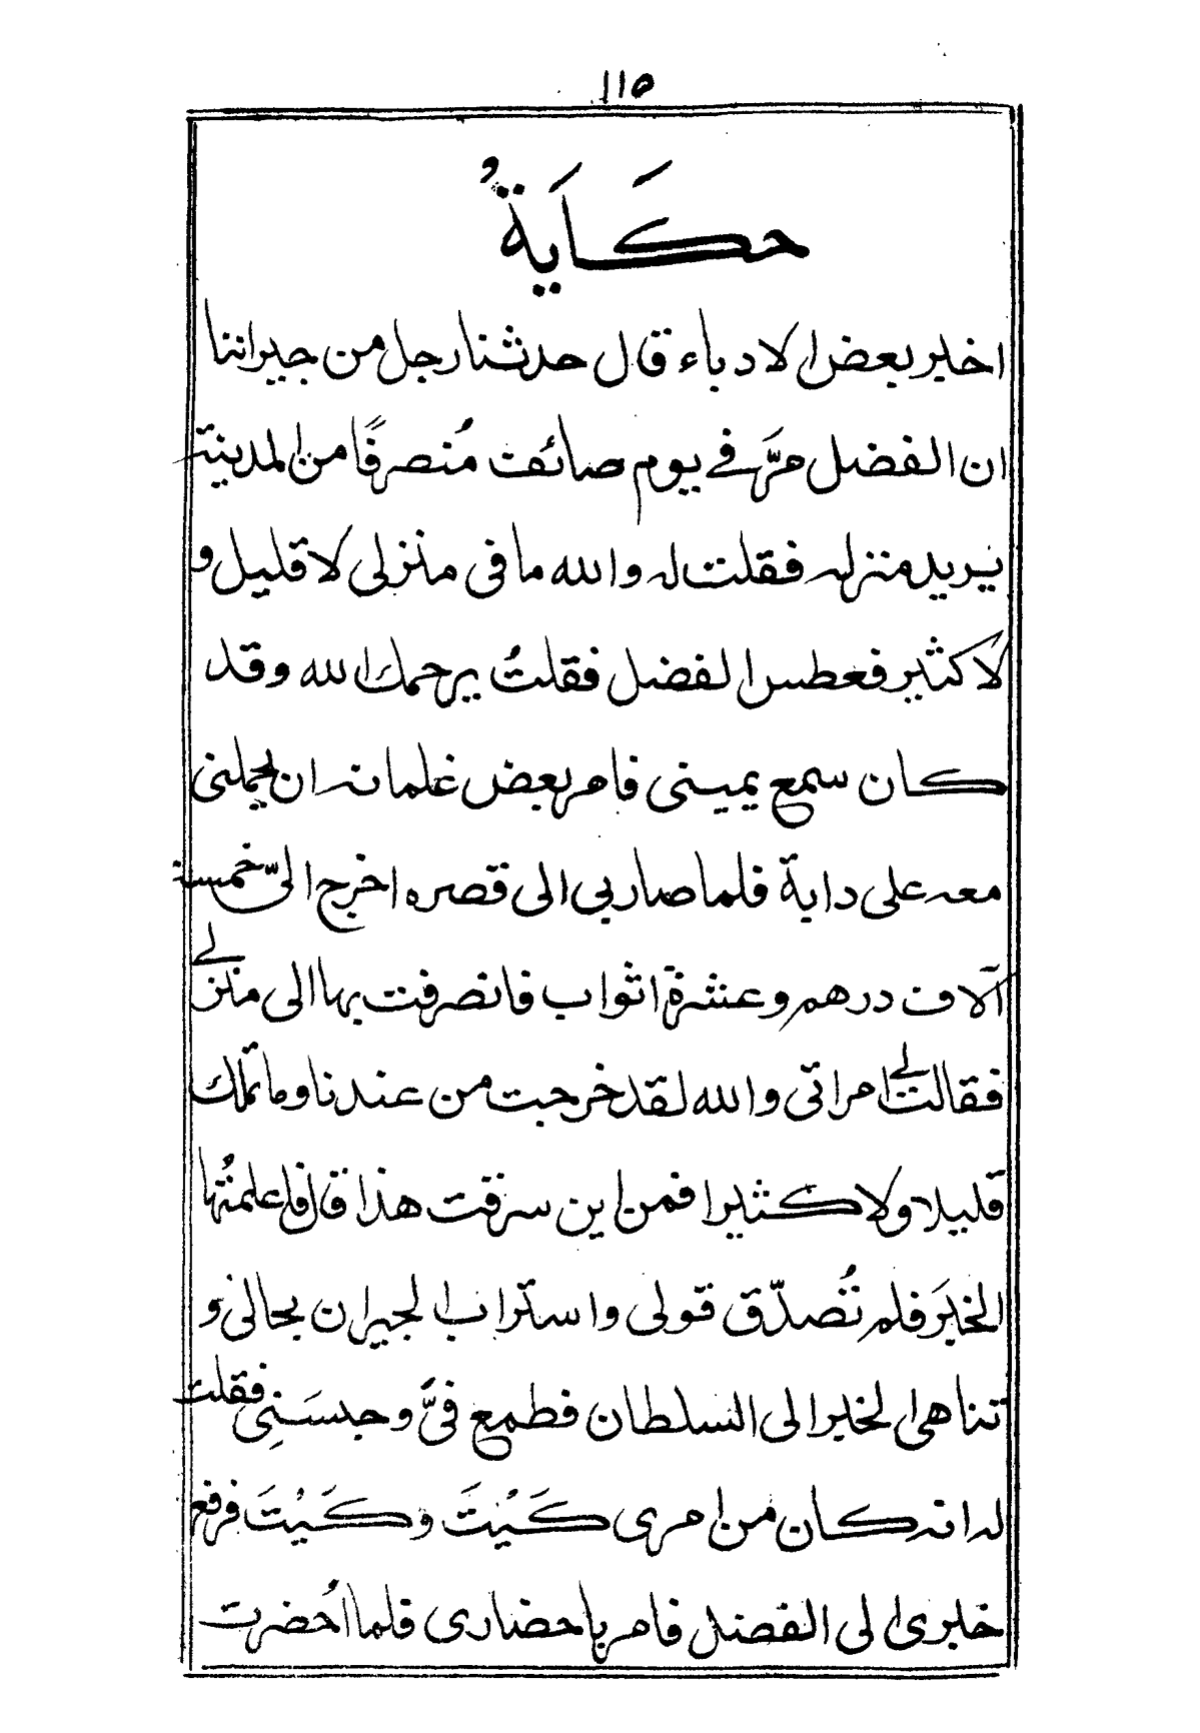 ١١٥
حكَايَةٌ
اخبر بعض الادباء قال حدثنا رجل من جيراننا
ان الفضل مرَّ في يوم صائف مُنصرفًا من المدينة
يريد منزله فقلت له والله ما فى منزلى لا قليل و
لا كثير فعطس الفضل فقلتُ يرحمك الله وقد
كان سمع يمينى فامر بعض غلمانه ان يحملنى
معه على داية فلما صار بي الى قصره اخرج الىّ خمسة
آلاف درهم وعشرة اثواب فانصرفت بها الى منزلے
فقالت لے امراتى والله لقد خرجت من عندنا وما تملك
قليلا ولا كثيرا فمن اين سرقت هذا قال فاعلمتُها
الخبَر فلم تُصدّق قولى واستراب الجيران بحالى و
تناهى الخبر الى السلطان فطمع فىَّ وحبسَنِى فقلت
له انه كان من امرى كَيْتَ وكَيْتَ فرفع
خبرى الى الفضل فامر باحضارى فلما اُحضرت